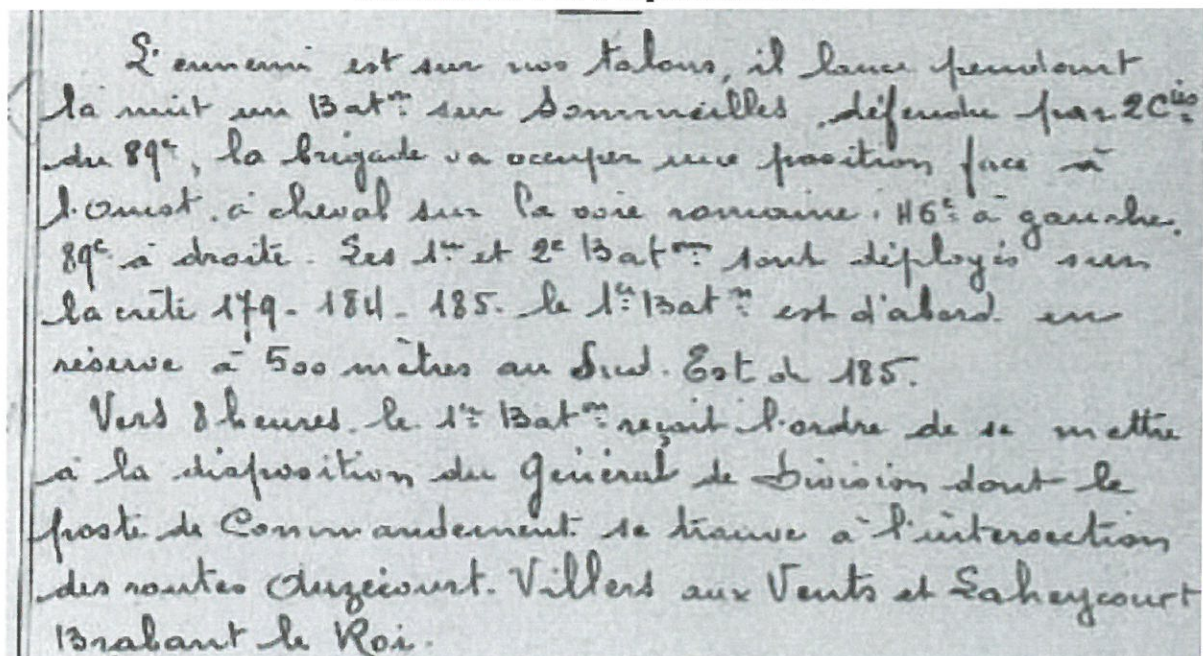 L'ennemi est sur nos talons, il lance pendant
la nuit un Bat^on sur Sommeilles, défendu par 2 C^ies
du 89^e, la brigade va occuper une position face à
l'Ouest, à cheval sur la voie romaine. 46^e à gauche.
89^e à droite. Les 1^er et 2^e Bat^ons sont déployés sur
la crête 179 - 184 - 185. le 1^er Bat^on est d'abord en
réserve à 500 mètres au Sud. Est de 185.
Vers 8 heures. le 1^er Bat^on reçoit l'ordre de se mettre
à la disposition du Général de Division dont le
poste de Commandement se trouve à l'intersection
des routes Auzécourt. Villers aux Vents et Laheycourt
Brabant le Roi.